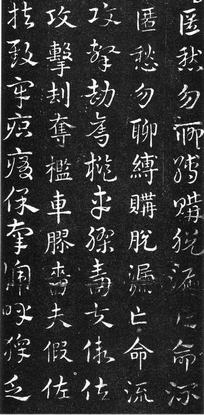 匿愁勿聊縛購脫漏亡命流
匿愁勿聊縛購脫漏亡命流
攻擊劫奪檻車膠嗇夫假佐
攻擊刦奪檻車膠嗇夫假佐
扶致牢疻痏保辜啼呼號乏